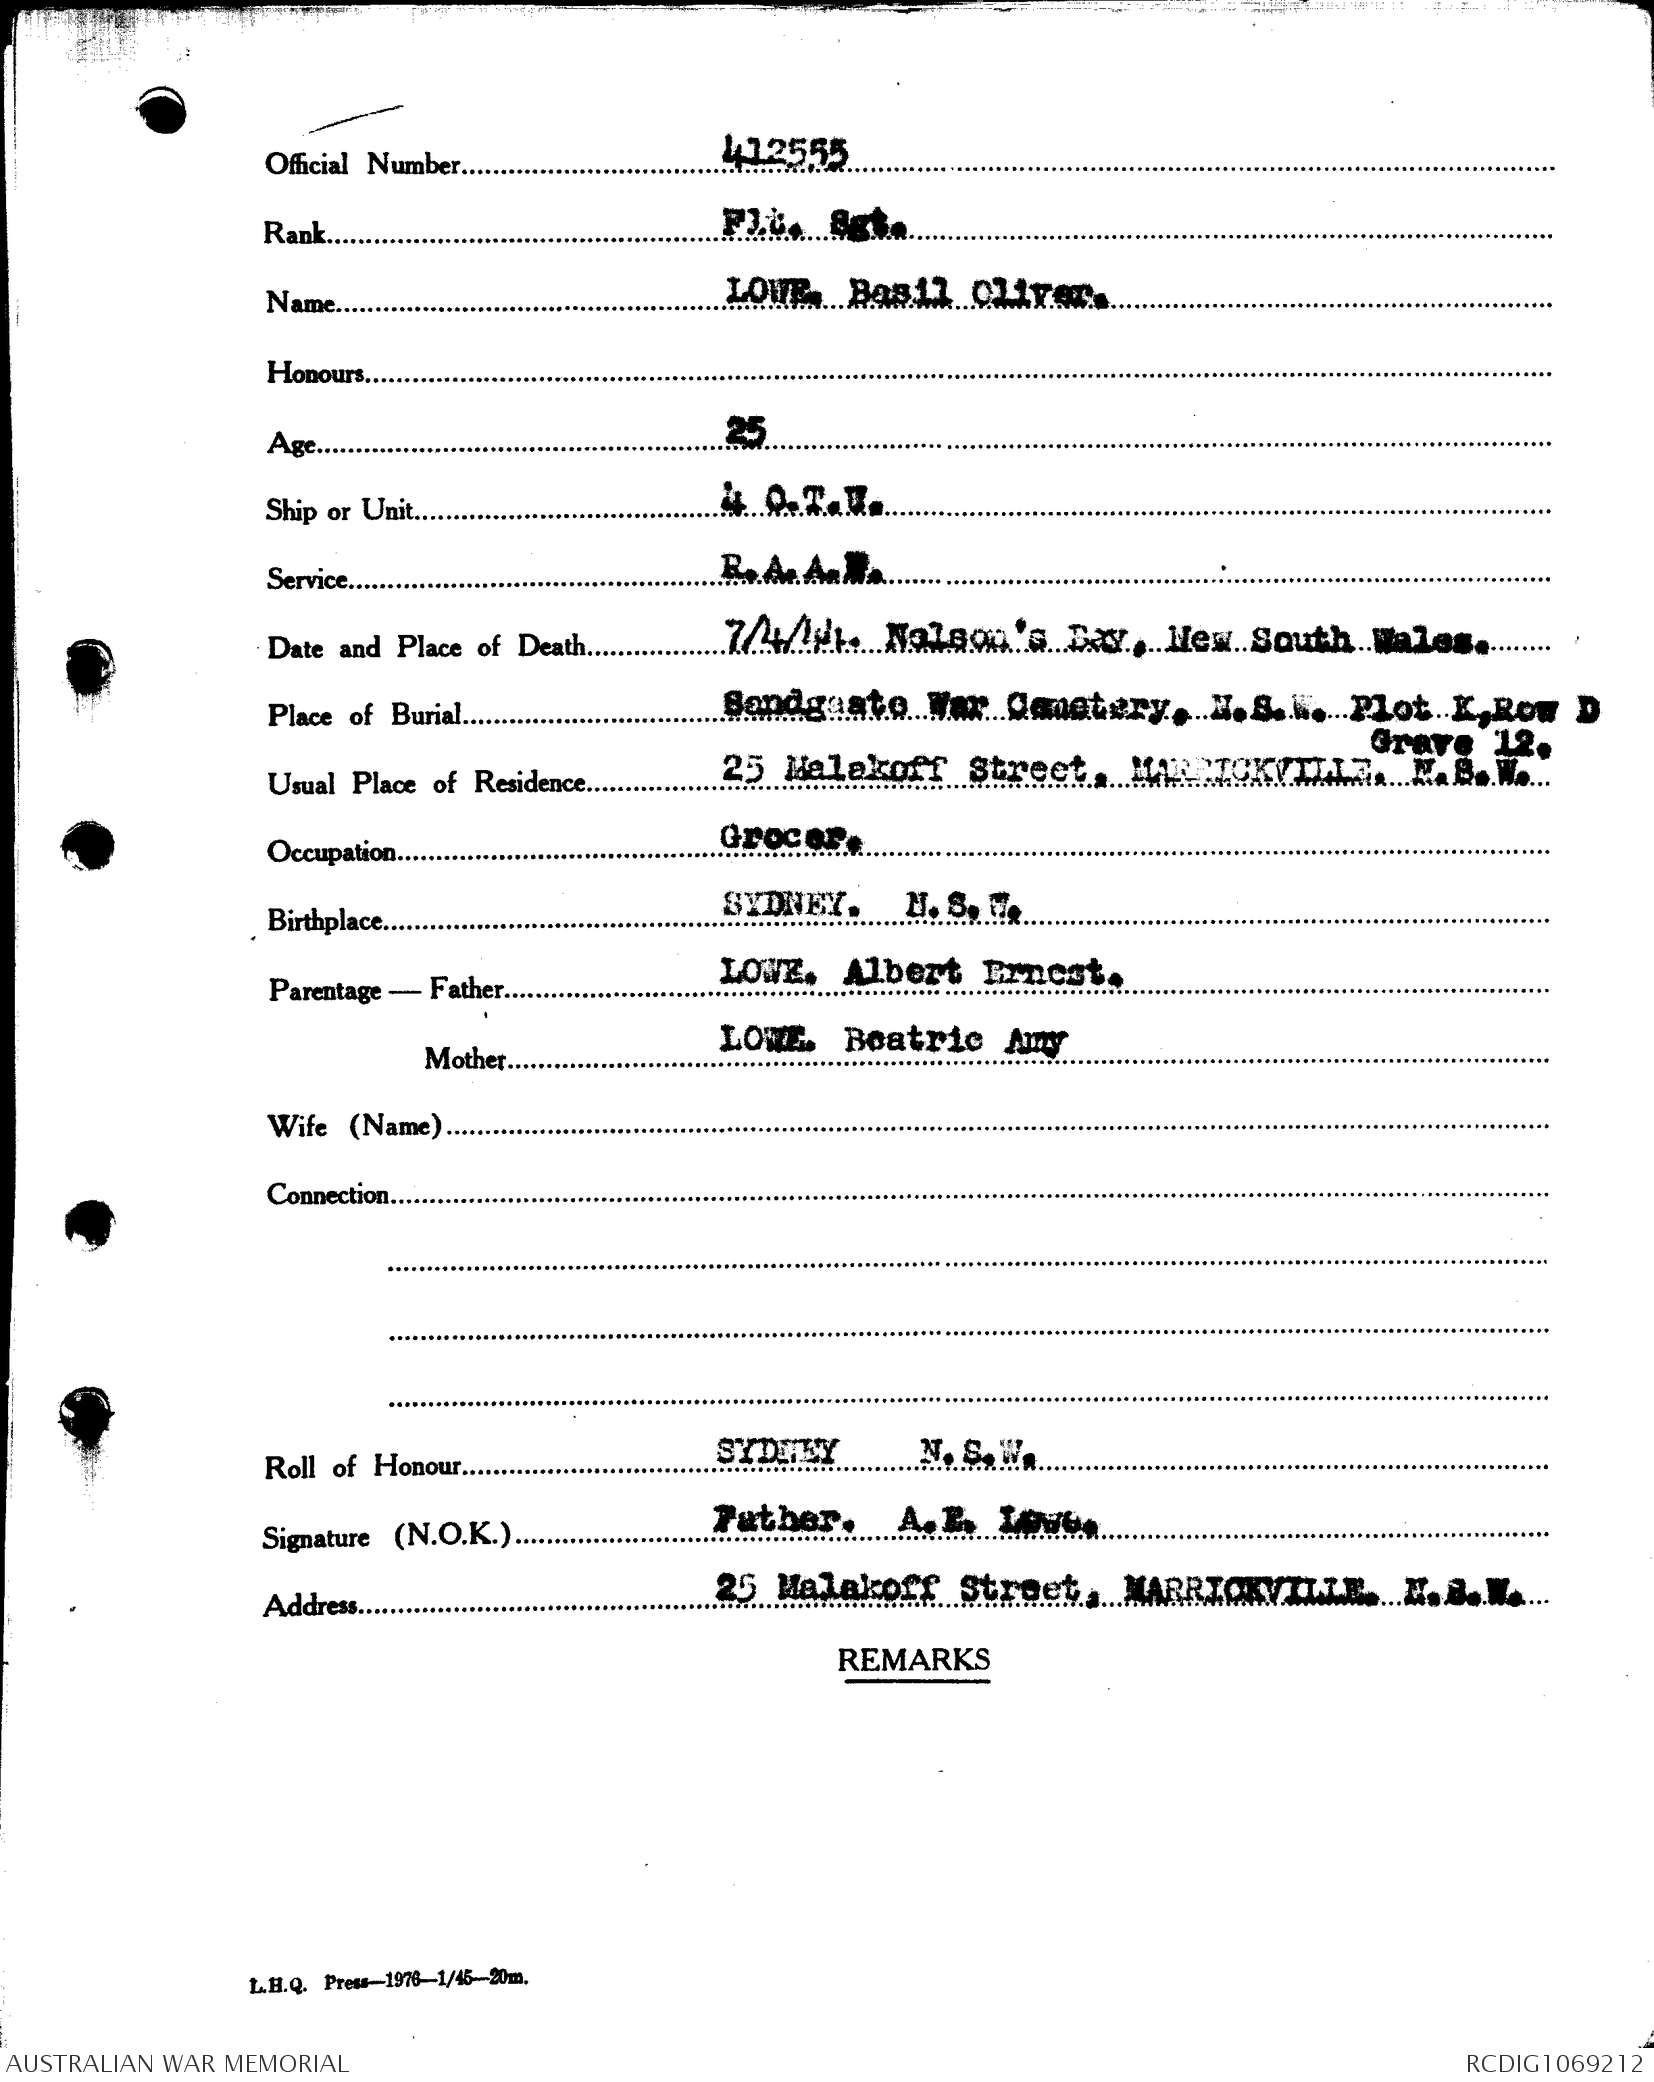 Official Number 412555
Rank Flt. Sgt.
Name LOWE. Basil Oliver.
Honours
Age 25
Ship or Unit 4 O.T.U.
Service R.A.A.F.
Date and Place of Death 7/4/44. Nelson's Bay, New South Wales.
Place of Burial Sandgaate War Cemetery, N.S.W. Plot K,Row D
Grave 12.
Usual Place of Residence 25 Malakoff Street, MARRICKVILLE. N.S.W.
Occupation Grocer.
Birthplace SYDNEY. N.S.W.
Parentage — Father LOWE. Albert Ernest.
Mother LOWE. Beatric Amy
Wife (Name)
Connection
Roll of Honour SYDNEY N.S.W.
Signature (N.O.K.) Father. A.E. Lowe.
Address 25 Malakoff Street, MARRICKVILLE. N.S.W.
REMARKS
L.H.Q. Press—1976—1/45—20m.
AUSTRALIAN WAR MEMORIAL RCDIG1069212